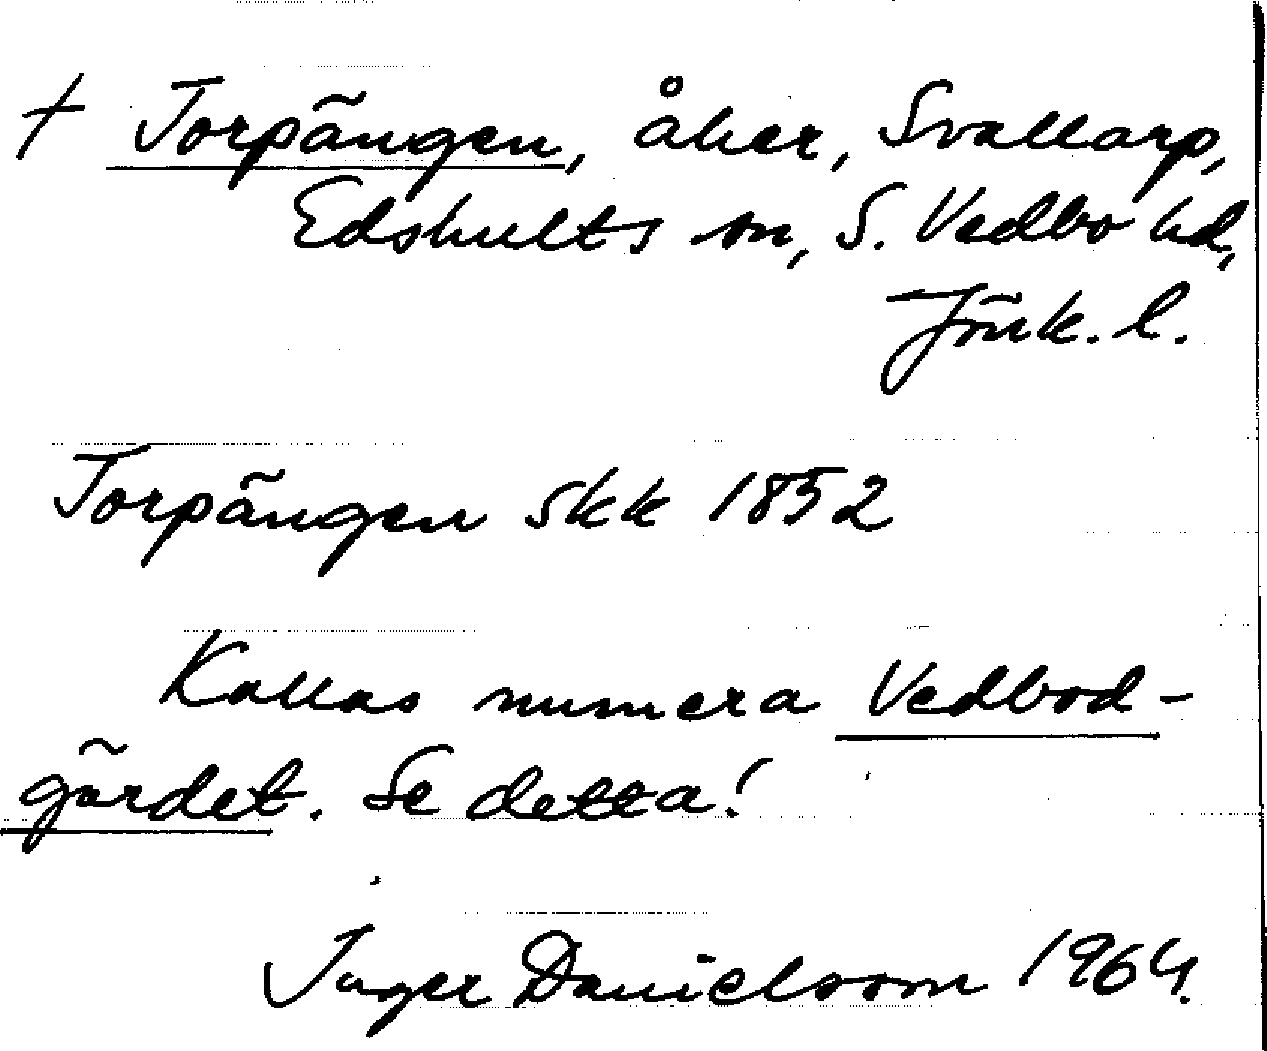 † Torpängen, åker, Svallarp,
Edshults sn, S. Vedbo hd,
Jönk. l.
Torpängen skk 1852
Kallas numera Vedbod-
gärdet. Se detta!
Inger Danielsson 1964.